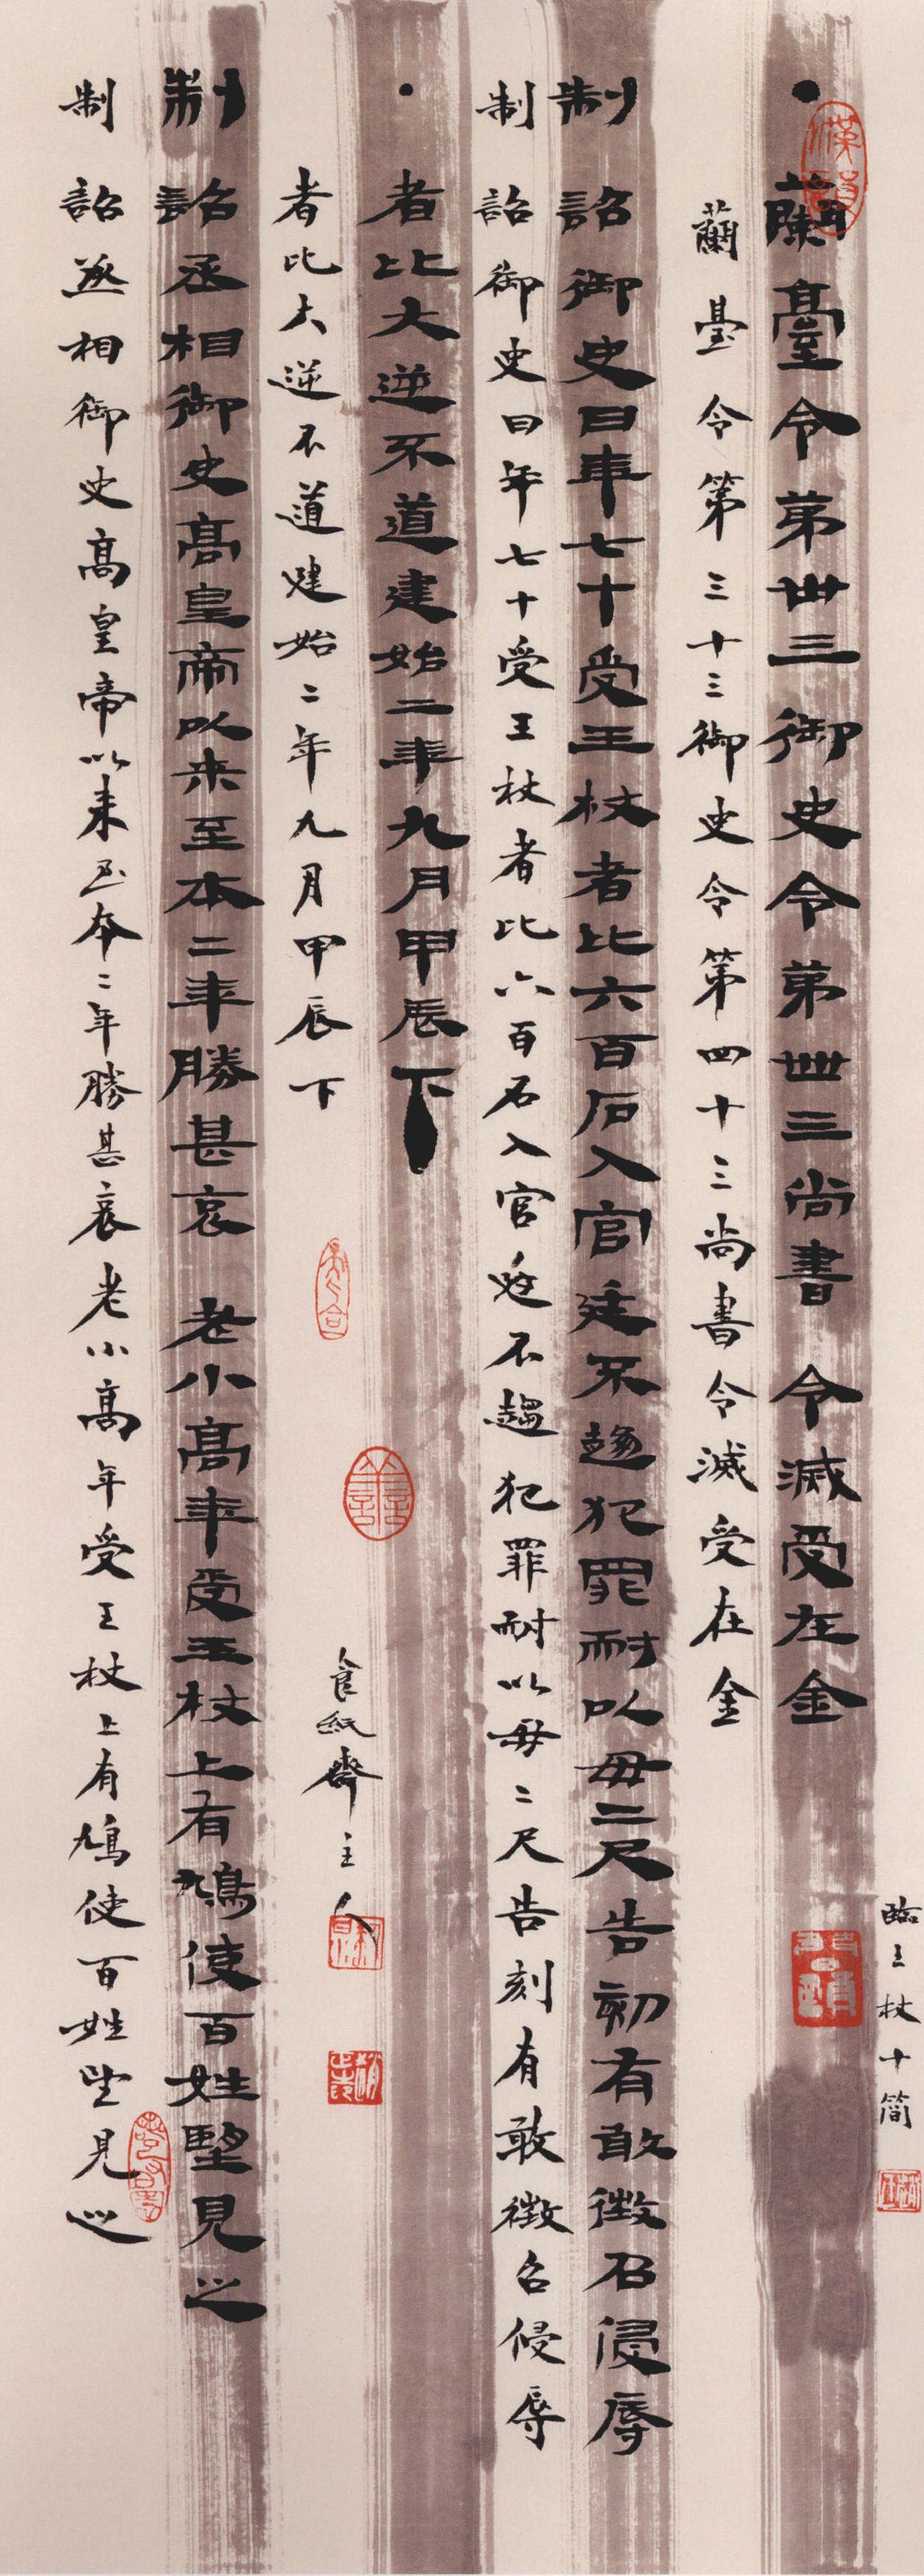 臨王杖十简
·蘭臺令第卅三御史令第卌三尚書令滅受在金
蘭臺令第三十三御史令第四十三尚書令滅受在金
制詔御史曰年七十受王杖者比六百石入官廷不趨犯罪耐以毋二尺告劾有敢徵召侵辱
制詔御史曰年七十受王杖者比六百石入官廷不趨犯罪耐以毋二尺告刻有敢徵召侵辱
·者比大逆不道建始二年九月甲辰下
者比大逆不道建始二年九月甲辰下
食紙齋主人
制詔丞相御史高皇帝以来至本二年勝甚哀老小高年受王杖上有鳩使百姓望見之
制詔丞相御史高皇帝以来至本二年勝甚哀老小高年受王杖上有鳩使百姓望見之